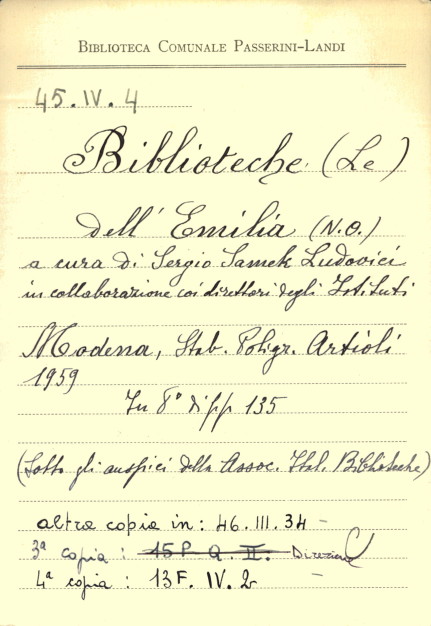 BIBLIOTECA COMUNALE PASSERINI-LANDI
45.IV.4
Biblioteche (Le)
dell' Emilia (N.O.)
a cura di Sergio Samek Ludovici
in collaborazione coi direttori degli Istituti
Modena, Stab. Poligr. Artioli
1959
In 8° di pp 135
(Sotto gli auspici della Assoc. Ital. Biblioteche)
altra copia in: 46.III.34 -
3ª copia : 45 P. Q. II. Direzione
4ª copia : 13 F. IV. 2 -